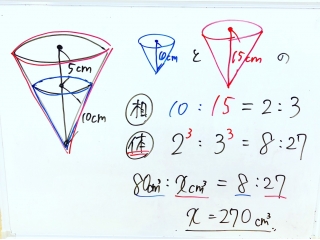 5cm
10cm
10cm と 15cm の
相 10 : 15 = 2 : 3
体 2³ : 3³ = 8 : 27
80cm³ : xcm³ = 8 : 27
x = 270cm³